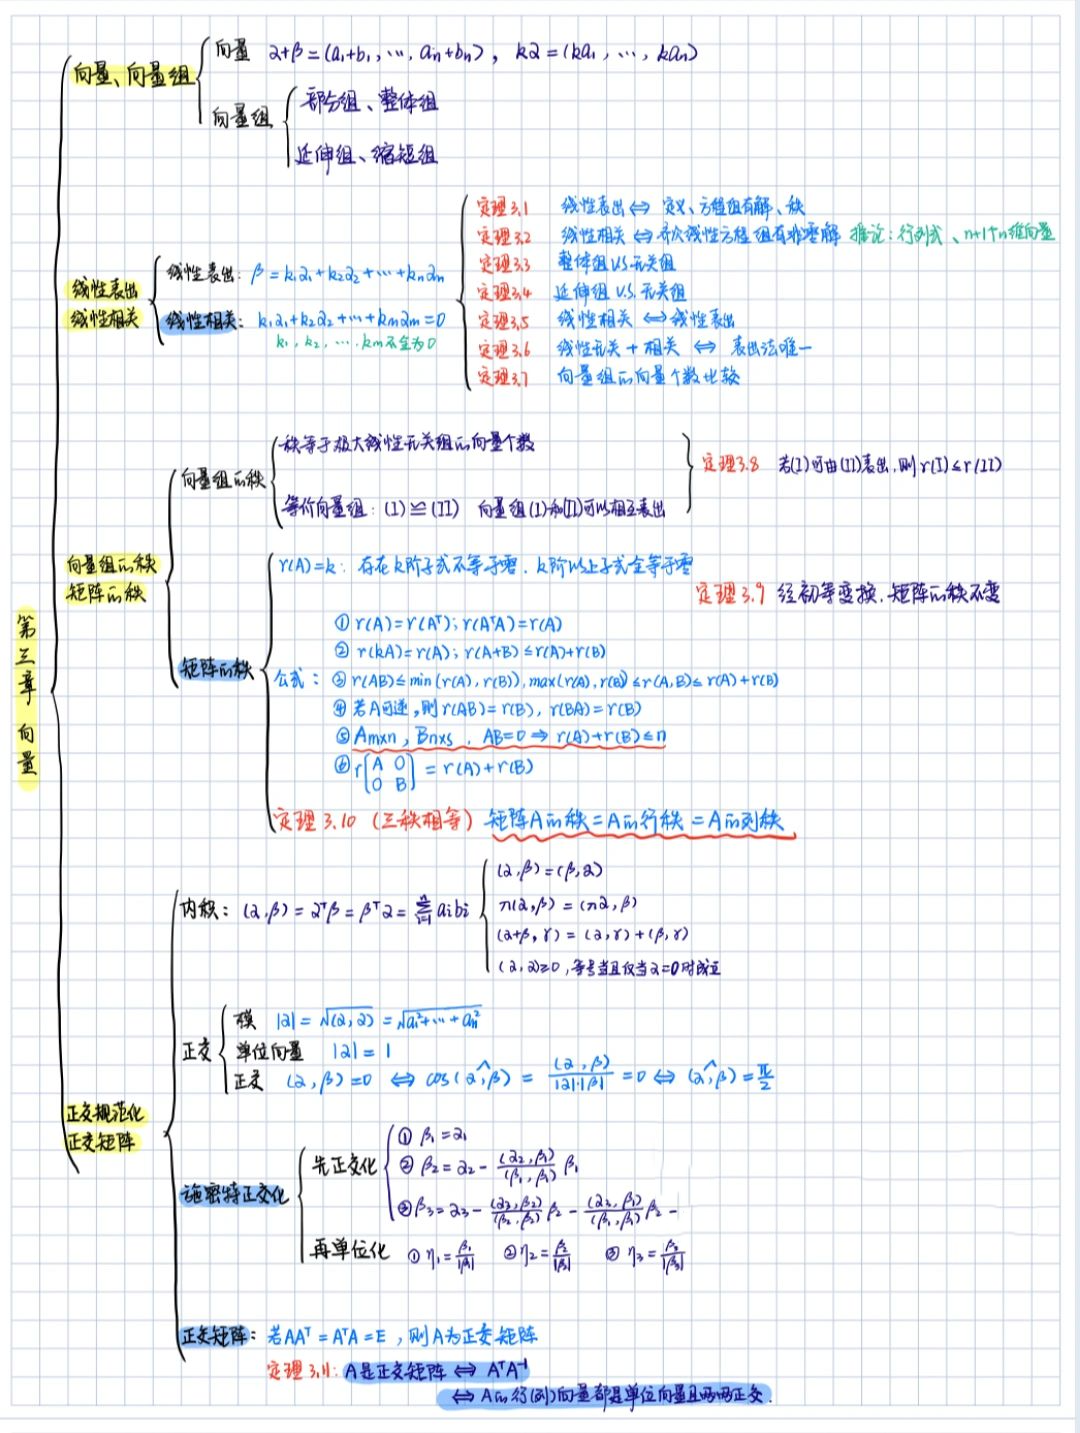 第三章 向量
向量、向量组
向量 α+β=(a₁+b₁, ⋯, aₙ+bₙ), kα=(ka₁, ⋯, kaₙ)
向量组
部分组、整体组
延伸组、缩短组
线性表出
线性相关
线性表出: β=k₁α₁+k₂α₂+⋯+kₘαₘ
线性相关: k₁α₁+k₂α₂+⋯+kₘαₘ=0
k₁, k₂, ⋯, kₘ不全为0
定理3.1 线性表出⇔ 定义、方程组有解、秩
定理3.2 线性相关⇔齐次线性方程组有非零解 推论:行列式、n+1个n维向量
定理3.3 整体组 VS.无关组
定理3.4 延伸组 V.S.无关组
定理3.5 线性相关⇔线性表出
定理3.6 线性无关+相关 ⇔ 表出法唯一
定理3.7 向量组的向量个数比较
向量组的秩
矩阵的秩
向量组的秩
秩等于极大线性无关组的向量个数
等价向量组: (I)≌(II) 向量组(I)和(II)可以相互表出
定理3.8 若(I)可由(II)表出,则r(I)≤r(II)
矩阵的秩
r(A)=k: 存在k阶子式不等于零,k阶以上子式全等于零
定理3.9 经初等变换,矩阵的秩不变
公式:
① r(A)=r(Aᵀ); r(AᵀA)=r(A)
② r(kA)=r(A); r(A+B)≤r(A)+r(B)
③ r(AB)≤min(r(A),r(B)), max(r(A),r(B))≤r(A,B)≤r(A)+r(B)
④ 若A可逆,则r(AB)=r(B), r(BA)=r(B)
⑤ Am×n, Bn×s, AB=0 ⇒ r(A)+r(B)≤n
⑥ r[A 0
0 B] = r(A)+r(B)
定理3.10 (三秩相等) 矩阵A的秩=A的行秩=A的列秩
正交规范化
正交矩阵
内积: (α,β)=αᵀβ=βᵀα=∑ⁿᵢ₌₁aᵢbᵢ
(α,β)=(β,α)
π(α,β)=(πα,β)
(α+β,γ)=(α,γ)+(β,γ)
(α,α)≥0,等号当且仅当α=0时成立
正交
模 |α|=√(α,α)=√a₁²+⋯+aₙ²
单位向量 |α|=1
正交 (α,β)=0 ⇔ cos(α^,β)= (α,β)/|α|·|β| =0 ⇔ (α^,β)=π/2
施密特正交化
先正交化
① β₁=α₁
② β₂=α₂-(α₂,β₁)/(β₁,β₁) β₁
③ β₃=α₃-(α₃,β₂)/(β₂,β₂) β₂-(α₃,β₁)/(β₁,β₁) β₂-
再单位化 ① η₁=β₁/|β₁| ② η₂=β₂/|β₂| ③ η₃=β₃/|β₃|
正交矩阵: 若AAᵀ=AᵀA=E,则A为正交矩阵
定理3.11: A是正交矩阵 ⇔ AᵀA⁻¹
⇔ A的行(列)向量都是单位向量且两两正交.